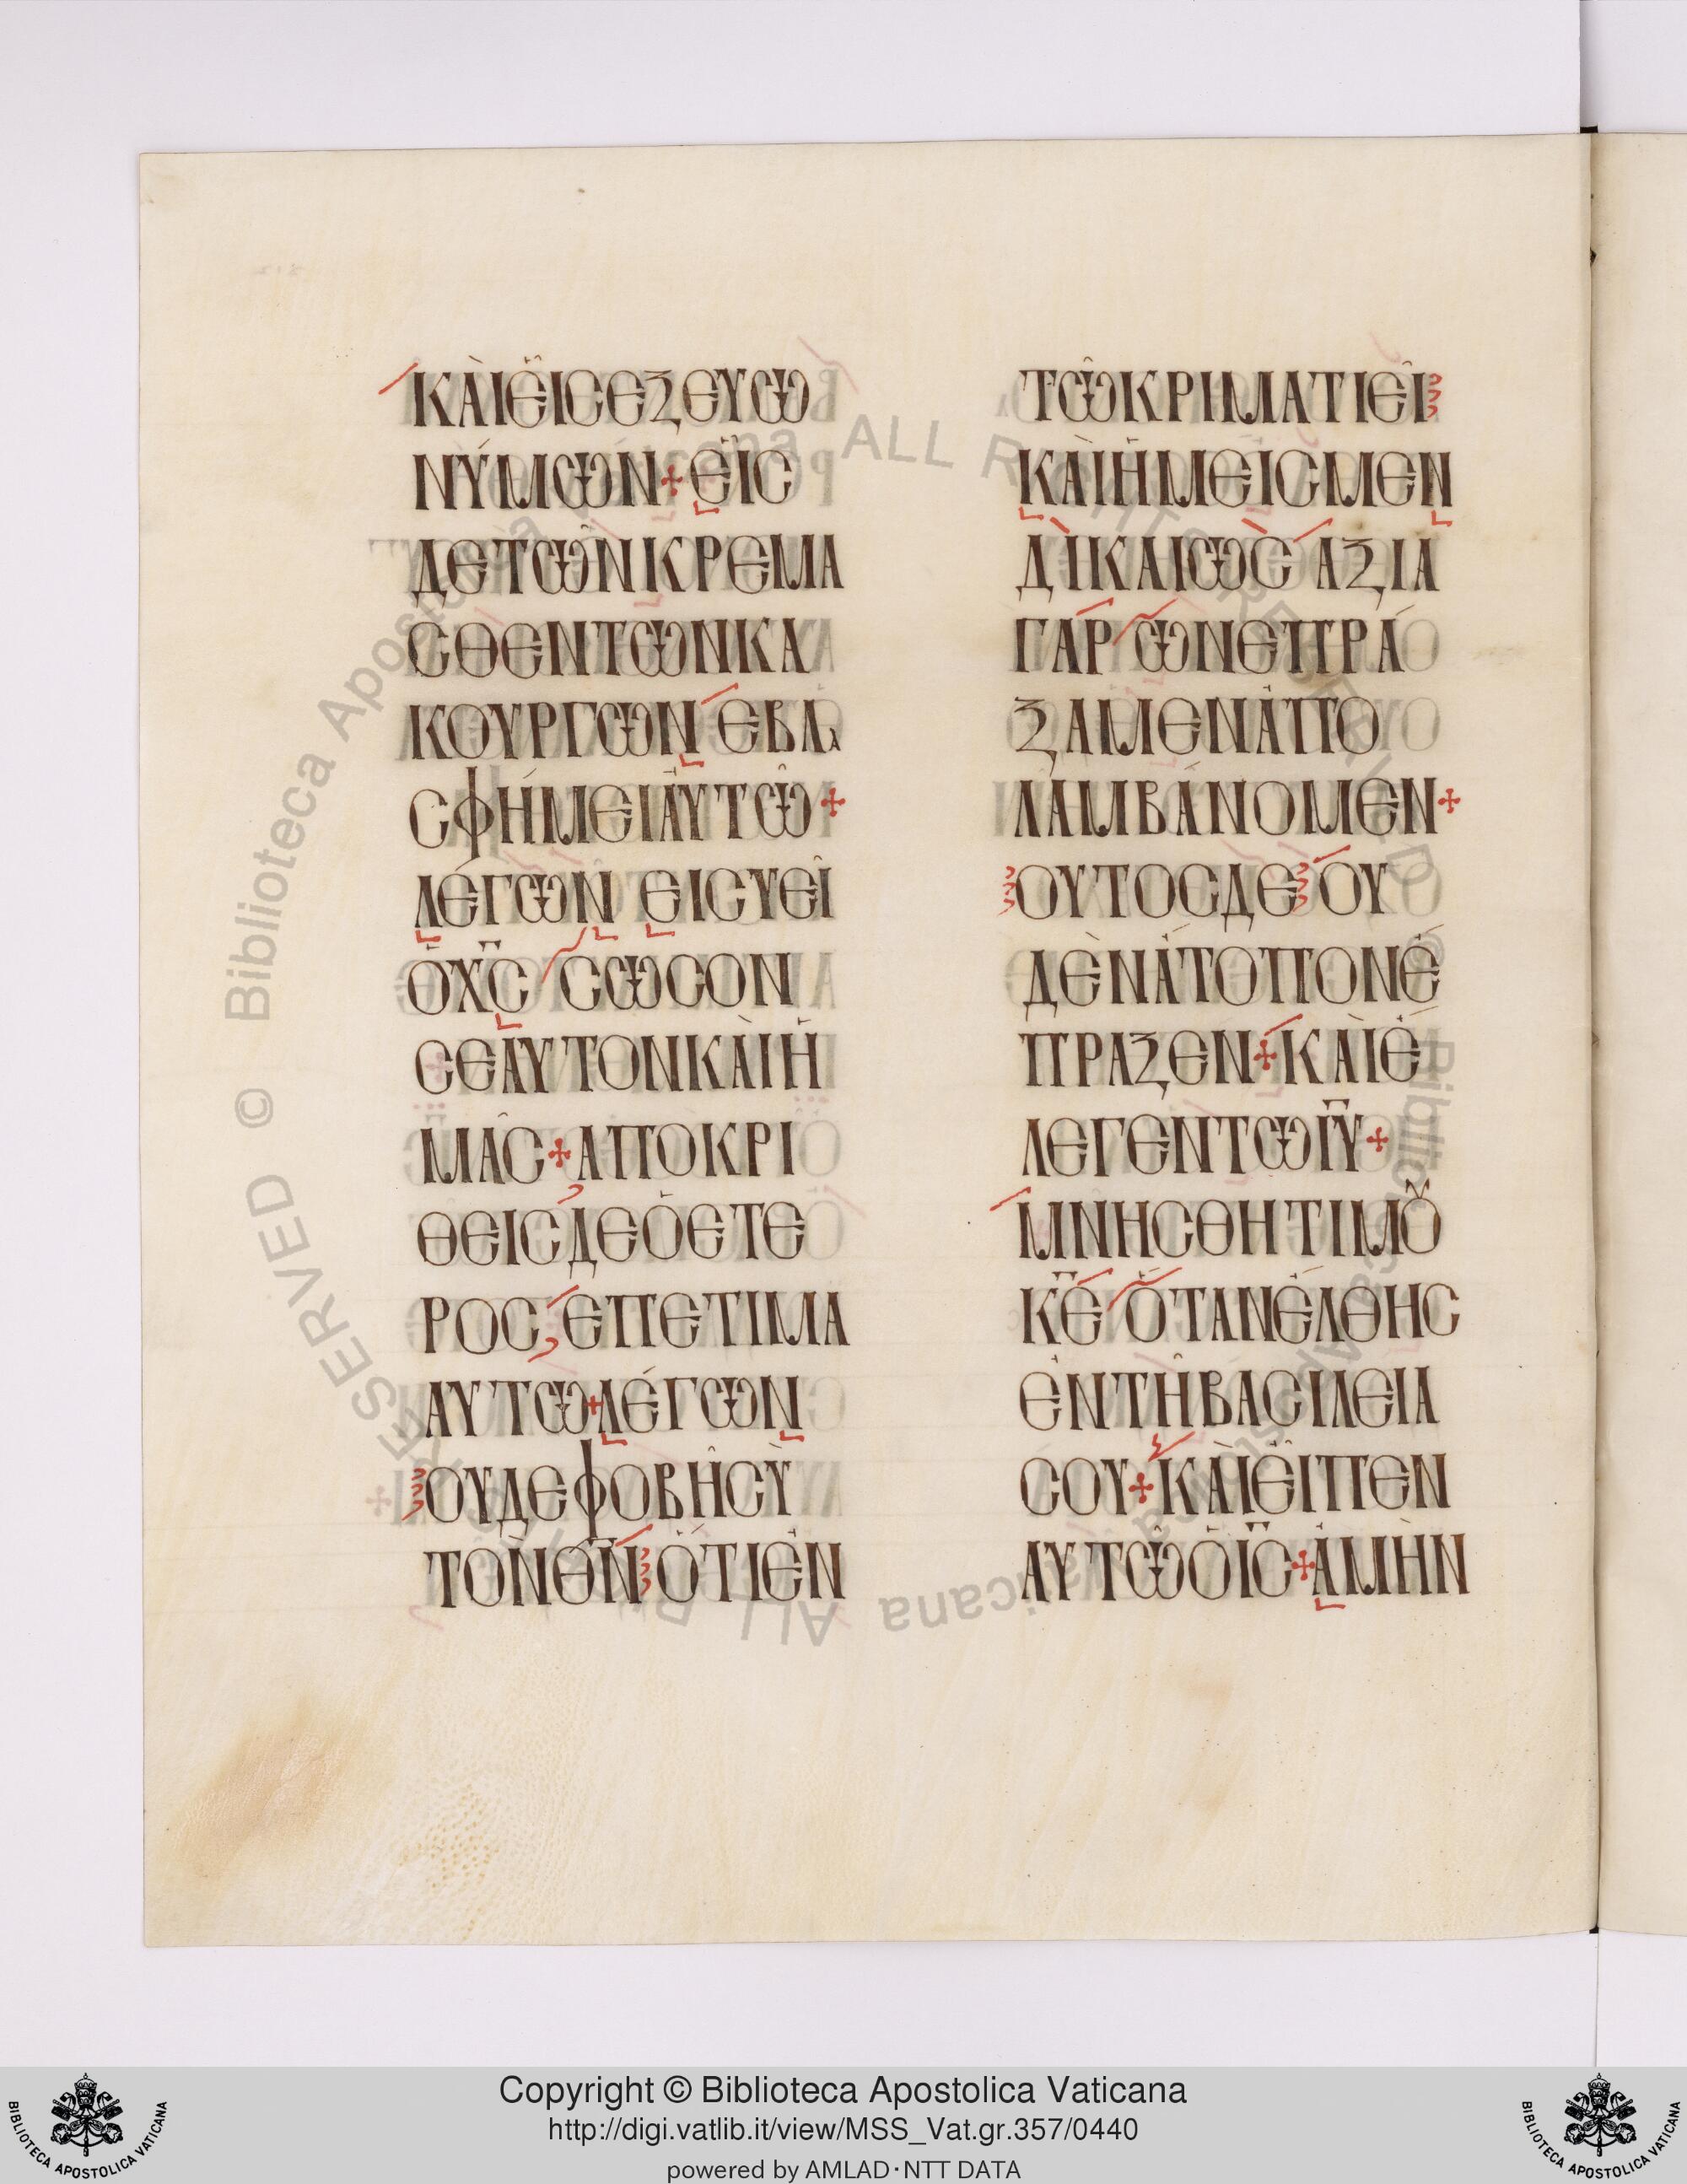 ΚΑΙΕΙСΕΞΕΥΩ
ΝΥΜΩΝ+ΕΙС
ΔΕΤΩΝΚΡΕΜΑ
СΘΕΝΤΩΝΚΑ
ΚΟΥΡΓΩΝ ΕΒΛΑ
СΦΗΜΕΙΑΥΤΩ+
ΛΕΓΩΝ ΕΙСΥΕΙ
ΟΧ̅С̅ СΩСΟΝ
СΕΑΥΤΟΝΚΑΙΗ
ΜΑС+ΑΠΟΚΡΙ
ΘΕΙСΔΕΟΕΤΕ
ΡΟС ΕΠΕΤΙΜΑ
ΑΥΤΩ+ΛΕΓΩΝ
ΟΥΔΕΦΟΒΗСΥ
ΤΟΝΘ̅Ν̅ ΟΤΙΕΝ
ΤΩΚΡΙΜΑΤΙΕΙ
ΚΑΙΗΜΕΙСΜΕΝ
ΔΙΚΑΙΩС ΑΞΙΑ
ΓΑΡ ΩΝΕΠΡΑ
ΞΑΜΕΝΑΠΟ
ΛΑΜΒΑΝΟΜΕΝ+
ΟΥΤΟСΔΕ ΟΥ
ΔΕΝΑΤΟΠΟΝΕ
ΠΡΑΞΕΝ+ΚΑΙΕ
ΛΕΓΕΝΤΩΙ̅Υ̅+
ΜΝΗСΘΗΤΙΜȢ
Κ̅Ε̅ ΟΤΑΝΕΛΘΗС
ΕΝΤΗΒΑСΙΛΕΙΑ
СΟΥ+ΚΑΙΕΙΠΕΝ
ΑΥΤΩΟΙ̅С̅+ΑΜΗΝ
© Biblioteca Apostolica Vaticana ALL RIGHTS RESERVED © Biblioteca Apostolica Vaticana ALL RIGHTS RESERVED
BIBLIOTECA APOSTOLICA VATICANA
Copyright © Biblioteca Apostolica Vaticana
http://digi.vatlib.it/view/MSS_Vat.gr.357/0440
powered by AMLAD·NTT DATA
BIBLIOTECA APOSTOLICA VATICANA